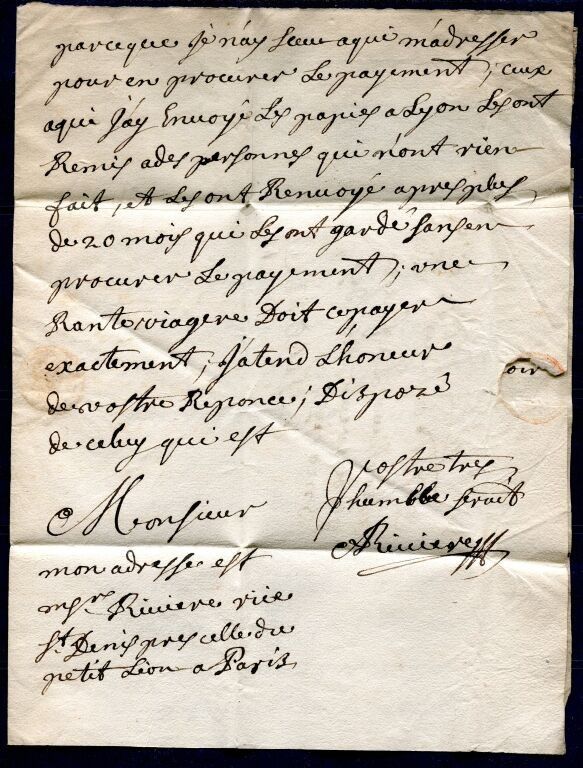 parceque Je n'ay Sceu aqui m'adresser
pour en procurer Le payement; ceux
aqui J'ay Envoyé Les papies a Lyon Les ont
Remis a des personnes qui n'ont rien
fait, et Les ont Renvoyé apres plus
de 20 mois qui Les ont gardé sans en
procurer Le payement; une
Rante viagere Doit ce payer
exactement; J'atend L'honeur
oir
de vostre Reponce; Disposé
de celuy qui est
Vostre tres
Monsieur
humbble servit
Riviere
mon adresse est
Riviere rüe
St. Denis pres celle du
petit Lion a Paris